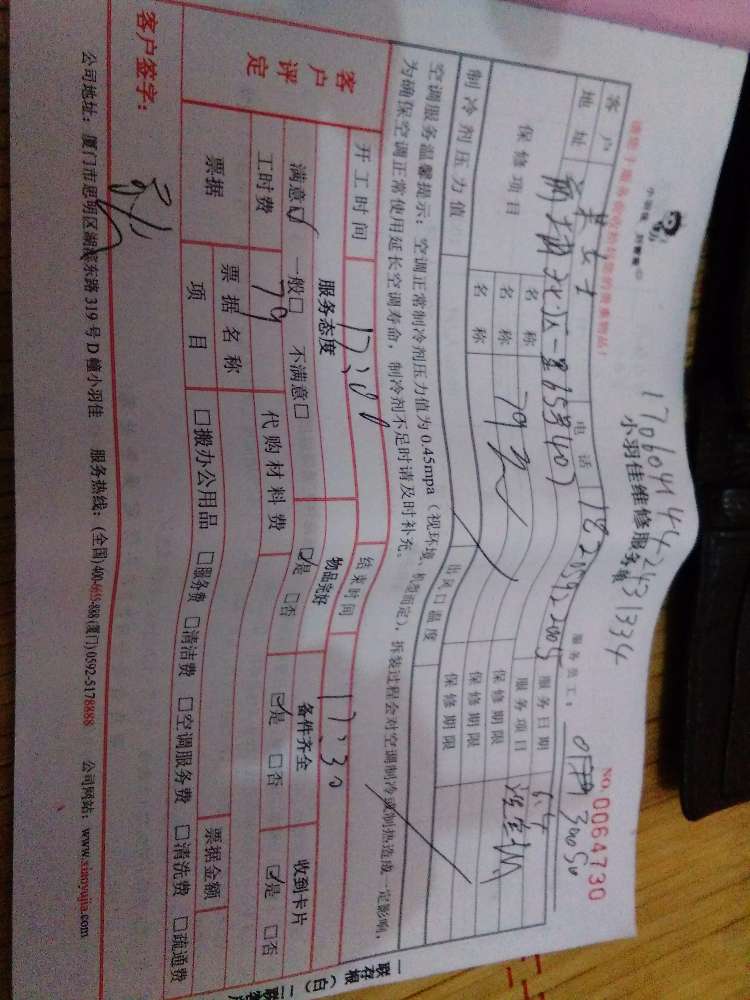 小羽佳 · 刘管家
17060414424313334
小羽佳维修服务单
NO. 0064730
请您于服务前收拾好您的贵重物品！
服务员工：
客户
电话
18205922005
服务日期
6.4
地址
服务项目
保修项目
名称
79元
保修期限
名称
保修期限
制冷剂压力值
出风口温度
保修期限
空调服务温馨提示：空调正常制冷剂压力值为0.45mpa（视环境、机型而定），拆装过程会对空调制冷或制热造成一定影响，
为确保空调正常使用延长空调寿命，制冷剂不足时请及时补充。
开工时间
17:00
结束时间
17:30
客户评定
服务态度
物品完好
备件齐全
收到卡片
满意☑ 一般□ 不满意□
☑是 □否
☑是 □否
☑是 □否
工时费
79
代购材料费
票据
票据名称
票据金额
项目
□搬办公用品 □服务费 □清洁费 □空调服务费 □清洗费 □疏通费
客户签字：
公司地址：厦门市思明区湖滨东路319号D幢小羽佳 服务热线：(全国) 400-6659-888 (厦门) 0592-5178888 公司网站：www.xiaoyujia.com
一联存根（白）二联客